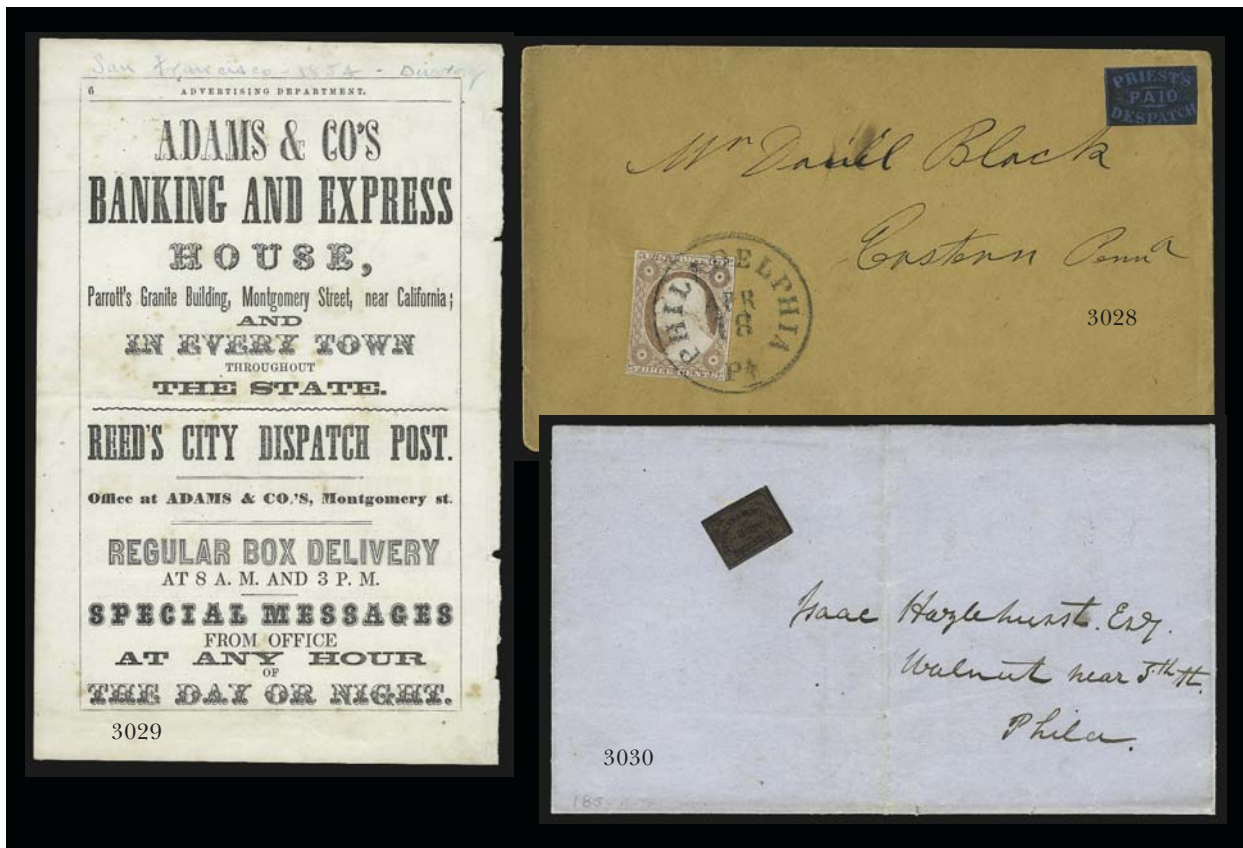 San Francisco - 1854 - Directory
6 ADVERTISING DEPARTMENT.
ADAMS & CO'S
BANKING AND EXPRESS
HOUSE,
Parrott's Granite Building, Montgomery Street, near California;
AND
IN EVERY TOWN
THROUGHOUT
THE STATE.
REED'S CITY DISPATCH POST.
Office at ADAMS & CO.'S, Montgomery st.
REGULAR BOX DELIVERY
AT 8 A. M. AND 3 P. M.
SPECIAL MESSAGES
FROM OFFICE
AT ANY HOUR
OF
THE DAY OR NIGHT.
3029
PRIEST'S
PAID
DESPATCH
Mr Daniel Black
Eastern Penna
3028
PHILADELPHIA
APR
Pa
THREE CENTS
Isaac Hazlehurst. Esq.
Walnut near 5th St.
Phila.
3030